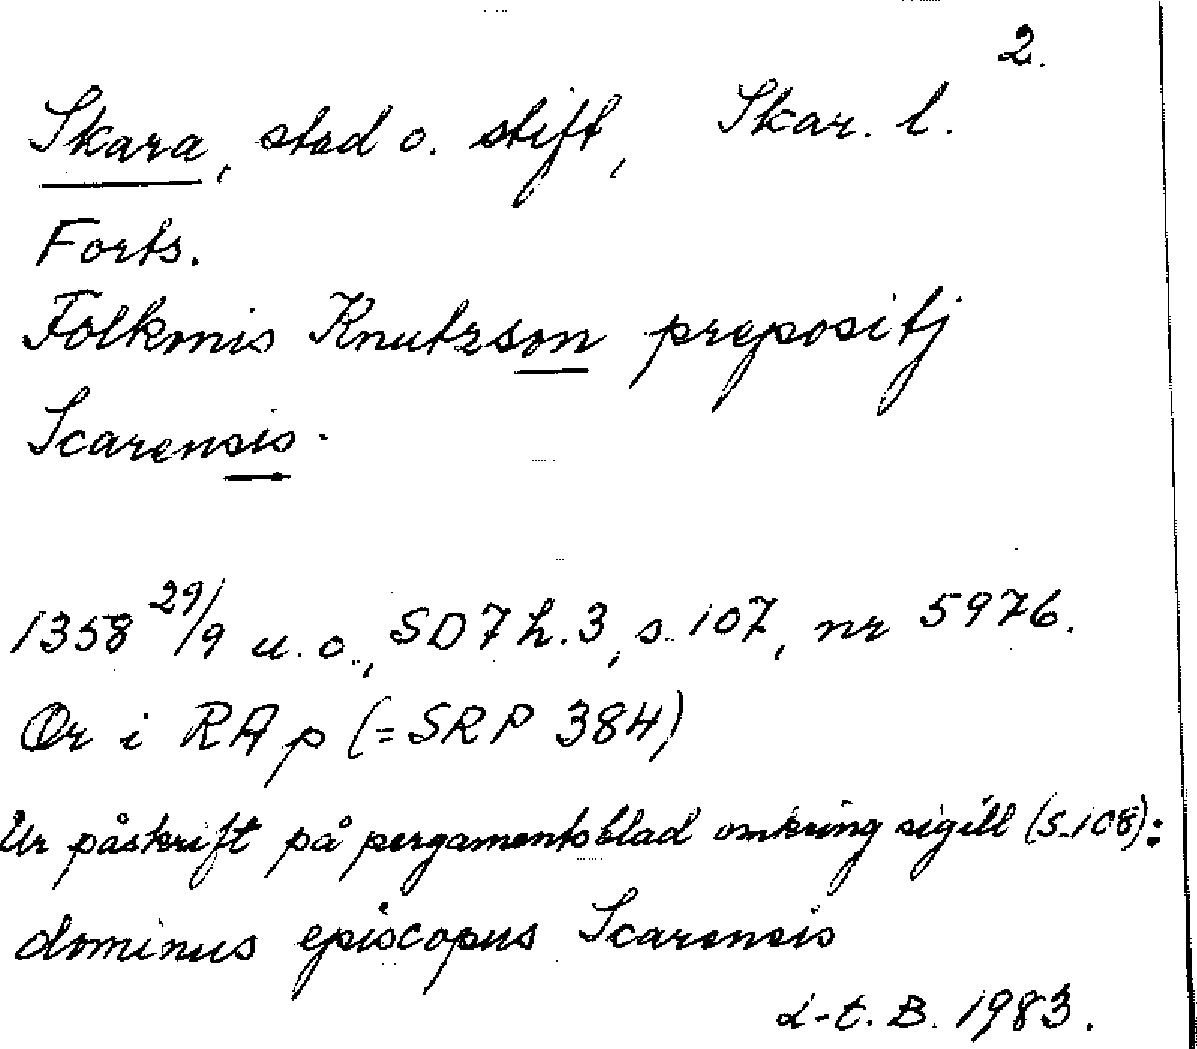 2.
Skara, stad o. stift, Skar. l.
Forts.
Folkmis Knutzson prepositj
Scarensis.
1358 29/9 u.o., SD 7 h. 3, s. 107, nr 5976.
Or i RAp (= SRP 384)
Ur påskrift på pergamentsblad omkring sigill (s. 108):
dominus episcopus Scarensis
L-t. B. 1983.